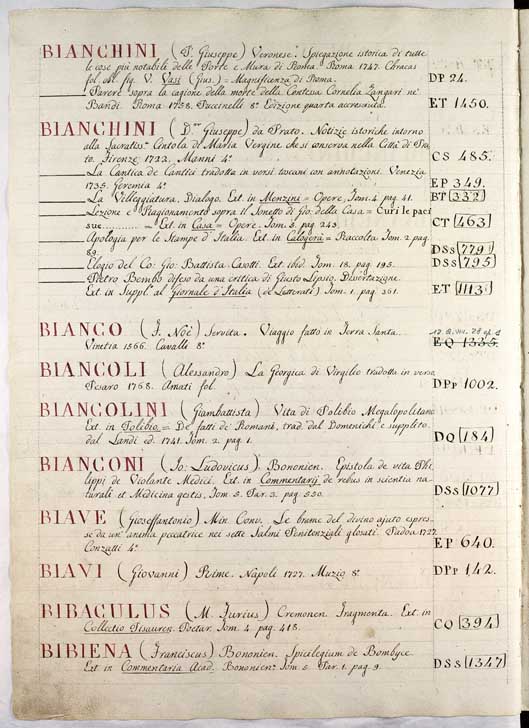 BIANCHINI (P. Giuseppe) Veronese. Spiegazione istorica di tutte
le cose più notabile delle Porte e Mura di Roma. Roma 1747. Chracas
fol. Al. fig. V. Vasi (Gius.) = Magnificenza di Roma. DP 24.
Parere sopra la cagione della morte della Contessa Cornelia Zangari ne'
Bandi. Roma 1758. Puccinelli 8º Edizione quarta accresciuta. ET 1450.
BIANCHINI (D.r Giuseppe) da Prato. Notizie istoriche intorno
alla Sacratiss.ª Cintola di Maria Vergine che si conserva nella Città di Pra
to. Firenze 1722. Manni 4º CS 485.
La Cantica de Cantici tradotta in versi toscani con annotazioni. Venezia
1735. Geremia 4º EP 349.
La Villeggiatura, Dialogo. Ext. in Menzini = Opere, Tom. 4. pag. 41. BT [332]
Lezione e Ragionamento sopra il Sonetto di Gio. della Casa = Curi le paci
sue ... = Ext. in Casa = Opere. Tom. 5. pag. 243. CT [463]
Apologia per le Stampe d'Italia. Ext. in Calogerà = Raccolta Tom. 2 pag.
89. DSs [779]
Elogio del Co: Gio: Battista Casotti. Ext. ibid. Tom. 18. pag. 195. DSs [795]
Pietro Bembo difeso da una critica di Giusto Lipsio. Dissertazione.
Ext. in Suppl. al Giornale d'Italia (de Letterati) Tom. 1. pag. 361. ET [1113]
BIANCO (F. Noè) Servita. Viaggio fatto in Terra Santa.
Venetia 1566. Cavalli 8º EQ 1335.
BIANCOLI (Alessandro) La Georgica di Virgilio tradotta in verso
Pesaro 1768. Amati fol. DPp 1002.
BIANCOLINI (Giambattista) Vita di Polibio Megalopolitano
Ext. in Polibio = De fatti de' Romani, trad. dal Domenichi e supplito
dal Landi ed. 1741. Tom. 2. pag. 1. DQ [184]
BIANCONI (Jo: Ludovicus) Bononien. Epistola de vita Phi
lippi de Violante Medici. Ext. in Commentarij de rebus in scientia na-
turali et Medicina gestis, Tom. 5. Par. 3. pag. 550. DSs [1077]
BIAVE (Gioseffantonio) Min. Conv. Le brame del divino ajuto espres-
se da un' anima peccatrice nei sette Salmi Penitenziali glosati. Padoa 1727.
Conzatti 4º EP 640.
BIAVI (Giovanni) Rime. Napoli 1727. Muzio 8º DPp 142.
BIBACULUS (M. Furius) Cremonen. Fragmenta. Ext. in
Collectio Pisauren. Poetar. Tom. 4. pag. 418. CO [394]
BIBIENA (Franciscus) Bononien. Spicilegium de Bombyce.
Ext. in Commentaria Acad. Bononien. Tom. 5. Par. 1. pag. 9. DSS [1347]